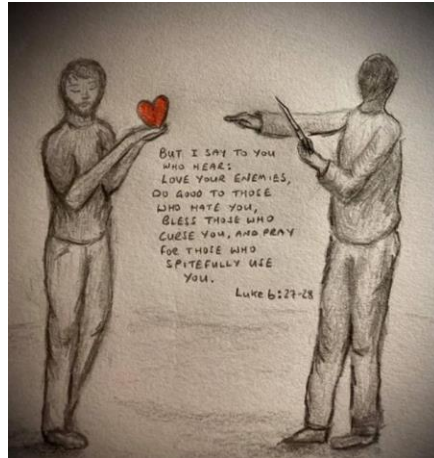 BUT I SAY TO YOU
WHO HEAR:
LOVE YOUR ENEMIES,
DO GOOD TO THOSE
WHO HATE YOU,
BLESS THOSE WHO
CURSE YOU, AND PRAY
FOR THOSE WHO
SPITEFULLY USE
YOU.
Luke 6:27-28